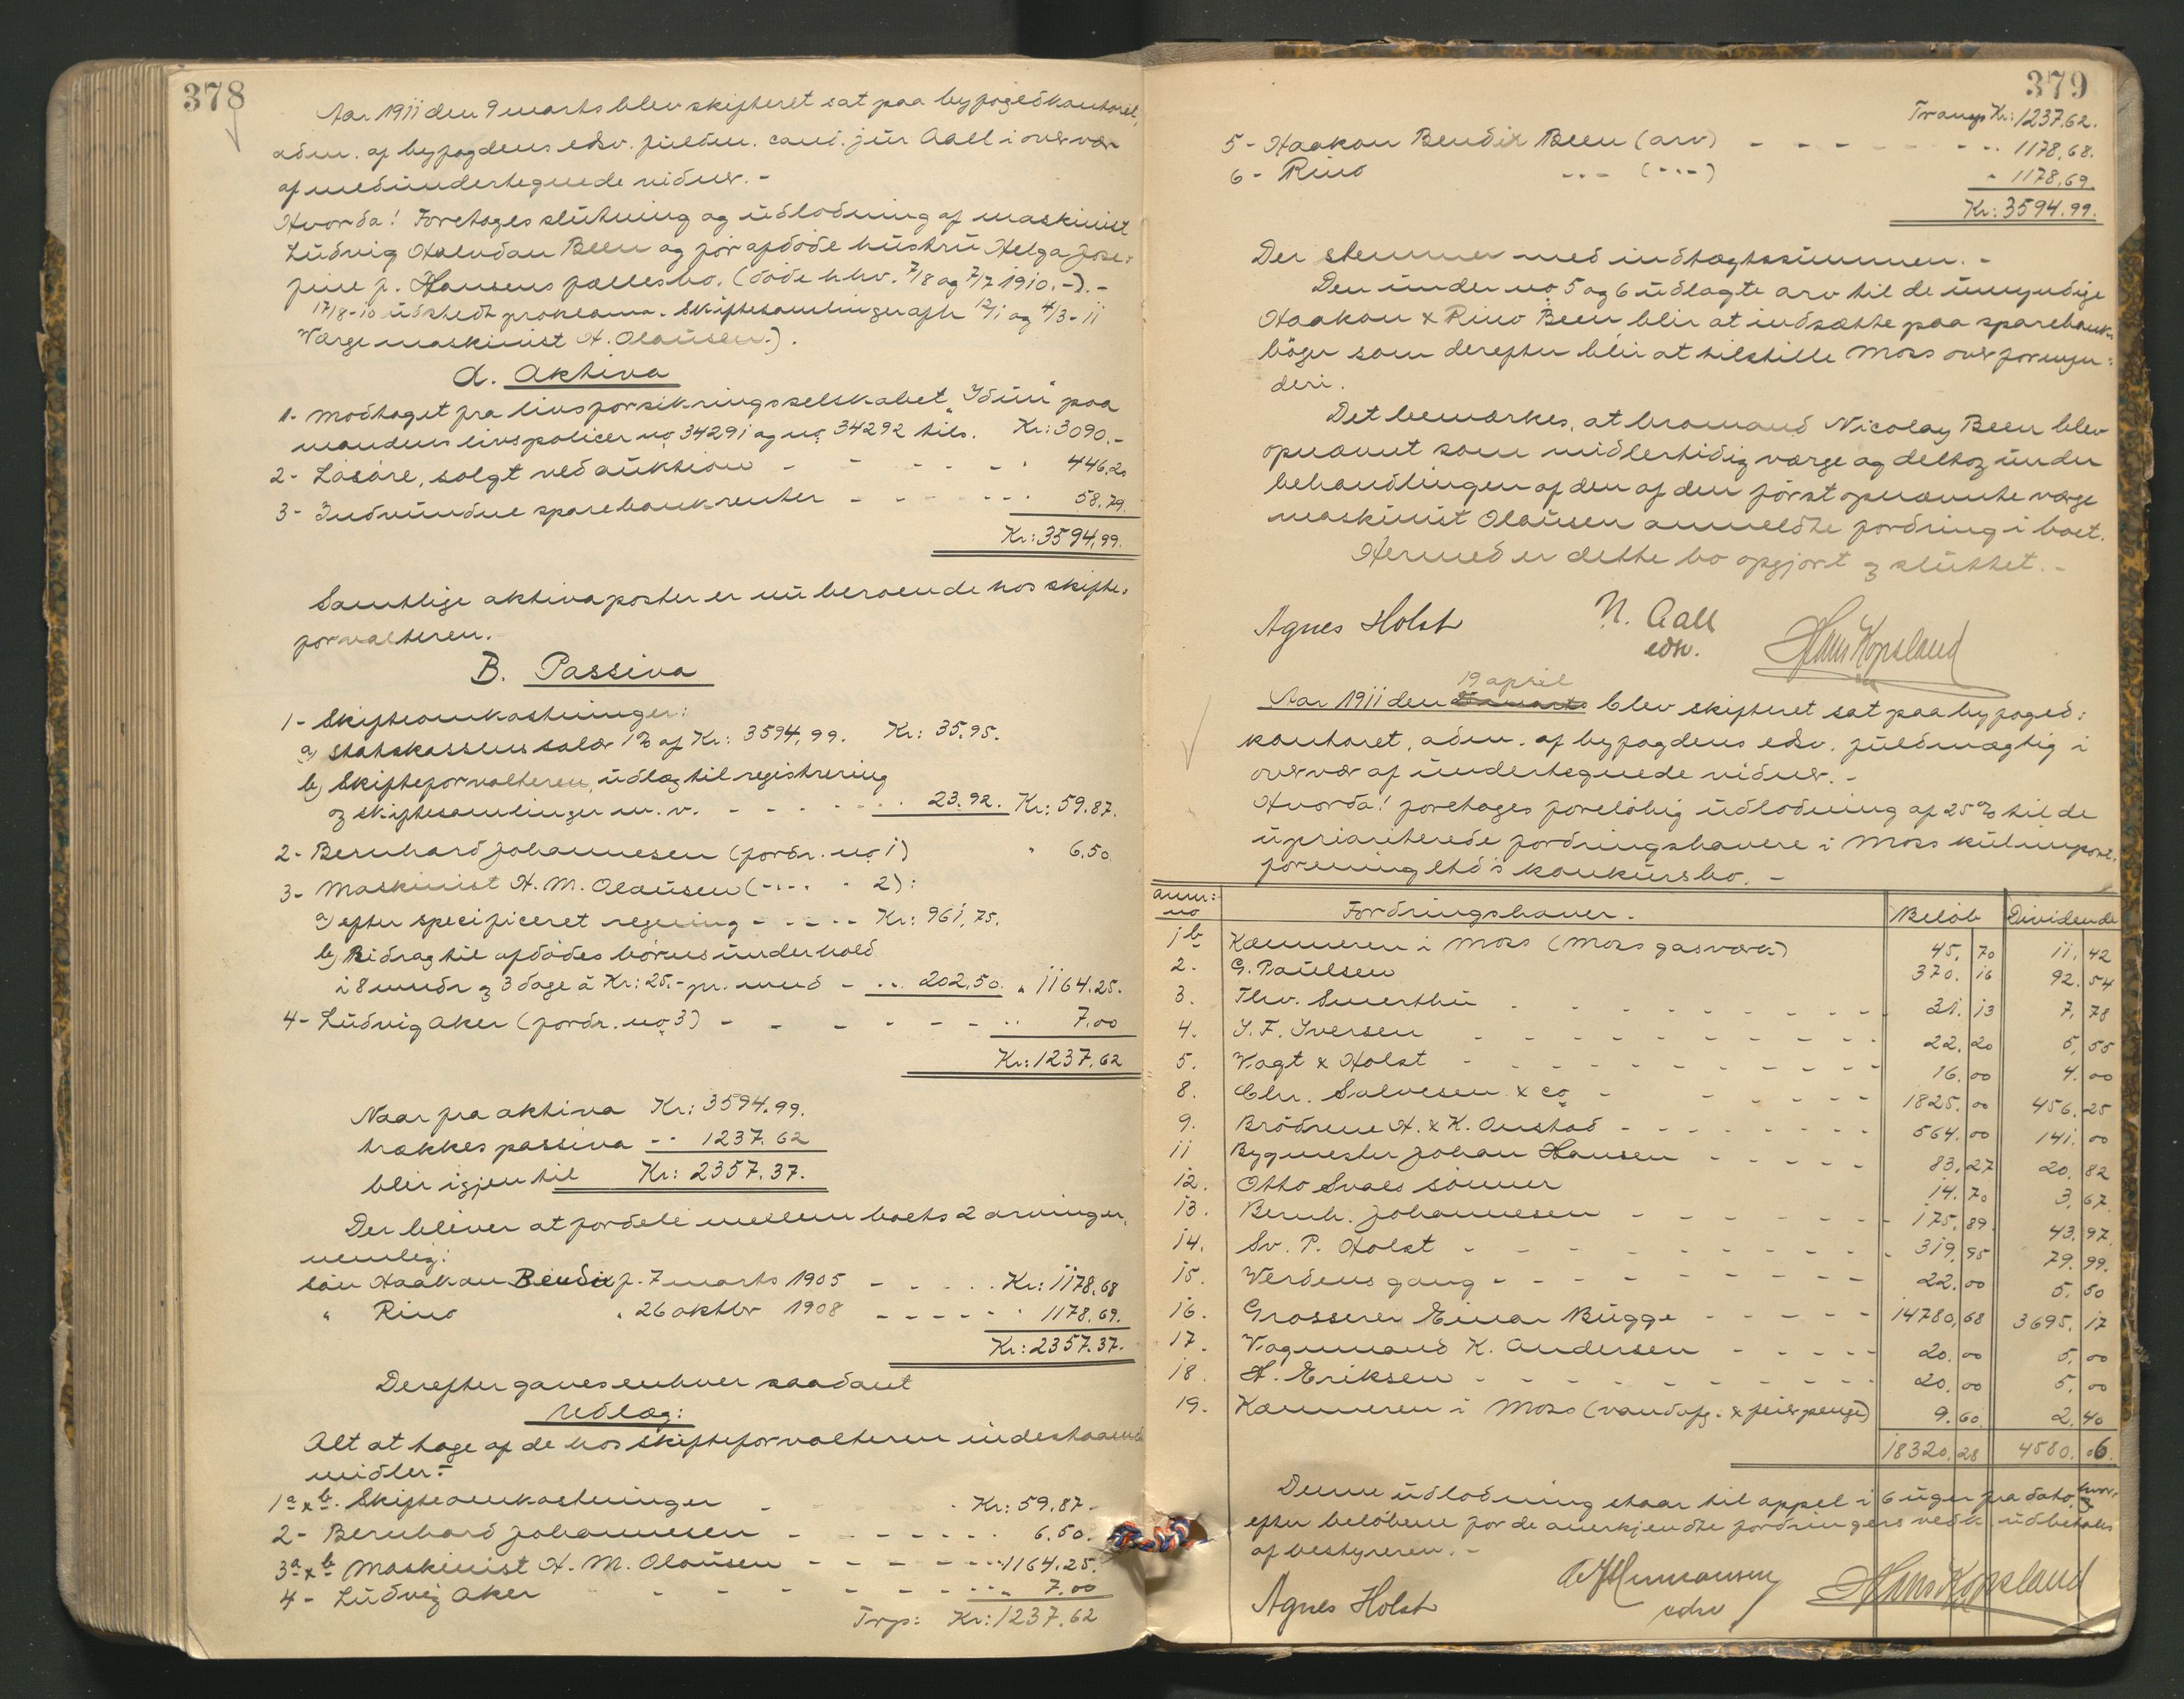 378
Aar 1911 den 9 marts blev skifteret sat paa byfogedkontoret,
adm. af byfogdens edsv. fuldm. cand. jur Aall i overvær
af medundertegnede vidner. -
Hvorda! Foretoges slutning og udlodning af maskinist
Ludvig Halvdan Been og før afdøde hustru Helga Jose-
fine f. Hansens fællesbo. (døde hhv. 7/8 og 7/7 1910. -). -
17/8-10 udstedt proklama. Skiftesamlinger afh 12/1 og 4/3-11
Værge maskinist H. Olausen.).
A. Aktiva
1- Modtaget fra livsforsikringsselskabet "Idun" paa
mandens livspolicer no 34291 og no 34292 tils. Kr: 3090.-
2- Løsøre, solgt ved auktion - - - - - " 446,20
3- Indvundne sparebankrenter - - - - - - " 58.79.
Kr: 3594,99.
Samtlige aktivaposter er nu beroende hos skifte-
forvalteren.
B. Passiva
1- Skifteomkostninger:
a) Statskassens salær 1% af Kr: 3594,99. Kr: 35.95.
b) Skifteforvalteren, udlæg til registrering
og skiftesamlinger m. v. - - - - - - 23.92. Kr: 59.87.
2- Bernhard Johannesen (fordr. no 1) " 6,50
3- Maskinist H. M. Olausen (-"- - " 2):
a) efter specificeret regning - - - - - Kr: 961,75.
b) Bidrag til afdødes børns underhold
i 8 mndr og 3 dage à Kr: 25.- pr. mnd - - 202,50. " 1164.25.
4- Ludvig Aker (fordr. no 3) - - - - - - - " 7.00
Kr: 1237,62
Naar fra aktiva Kr: 3594.99.
trækkes passiva - " 1237.62
blir igjen til Kr: 2357.37.
Der bliver at fordele mellem boets 2 arvinger,
nemlig:
søn Haakon Bendix f. 7 marts 1905 - - - - Kr: 1178,68
" Rino " 26 oktbr 1908 - - - - - " 1178.69.
Kr: 2357.37.
Derefter gaves enhver saadant
Udlæg:
Alt at tage af de hos skifteforvalteren indestaaende
midler:-
1a x b. Skifteomkostninger - - - - - Kr: 59.87.-
2- Bernhard Johannesen - - - - - - - 6.50.
3a x b Maskinist H. M. Olausen - - - - - " 1164.25.
4- Ludvig Aker - - - - - - - " 7.00
Trp: Kr: 1237.62
379
Transp Kr: 1237.62.
5- Haakon Bendix Been (arv) - - - - - - - " 1178,68.
6- Rino -"- (-"-) " 1178,69.
Kr: 3594.99.
Der stemmer med indtægtssummen. -
Den under no 5 og 6 udlagte arv til de umyndige
Haakon & Rino Been blir at indsætte paa sparebank-
bøger som derefter blir at tilstille Moss overformyn-
deri.
Det bemærkes, at bromand Nicolay Been blev
opnævnt som midlertidig værge og deltog under
behandlingen af den af den først opnævnte værge
maskinist Olausen anmeldte fordring i boet.
Hermed er dette bo opgjort og sluttet. -
Agnes Holst N. Aall Hans Kopsland
edsv.
19 april
Aar 1911 den blev skifteret sat paa byfoged-
kontoret, adm. af byfogdens edsv. fuldmægtig i
overvær af undertegnede vidner. -
Hvorda! foretoges foreløbig udlodning af 25% til de
uprioriterede fordringshavere i Moss kulimport-
forening ltd's konkursbo. -
Anm: no Fordringshaver. Beløb Dividende
1b Kæmneren i Moss (Moss gasværk) 45,70 11,42
2. G. Paulsen 370.16 92.54
3. Thv. Smerthu - - - - - - - 31.13 7,78
4. J. F. Iversen - - - - - - - 22.20 5,55
5. Vogt & Holst - - - - - - - 16.00 4.00
8. Chr. Salvesen & co - - - - - - 1825.00 456.25
9. Brødrene A. & K. Onstad - - - - - - - 564.00 141.00
11 Bygmester Johan Hansen - - - - - 83,27 20.82
12. Otto Svaes sønner 14.70 3,67
13. Bernh. Johannesen - - - - - - 175.89. 43,97.
14. Sv. P. Holst - - - - - - - - 319.95 79.99.
15. Verdens gang - - - - - - - - 22.00 5.50
16. Grosserer Einar Bugge - - - - - 14780,68 3695.17
17. Vognmand K. Andersen - - - - - 20.00 5.00
18. H. Eriksen - - - - - - - - - 20.00 5.00
19. Kæmneren i Moss (vandafg. & feierpenge) 9.60. 2,40
18320.28 4580.06
Denne udlodning staar til appel i 6 uger fra dato, hvor-
efter beløbene for de anerkjendte fordringers vedk. udbetales
af bestyreren. -
Agnes Holst edsv Hans Kopsland